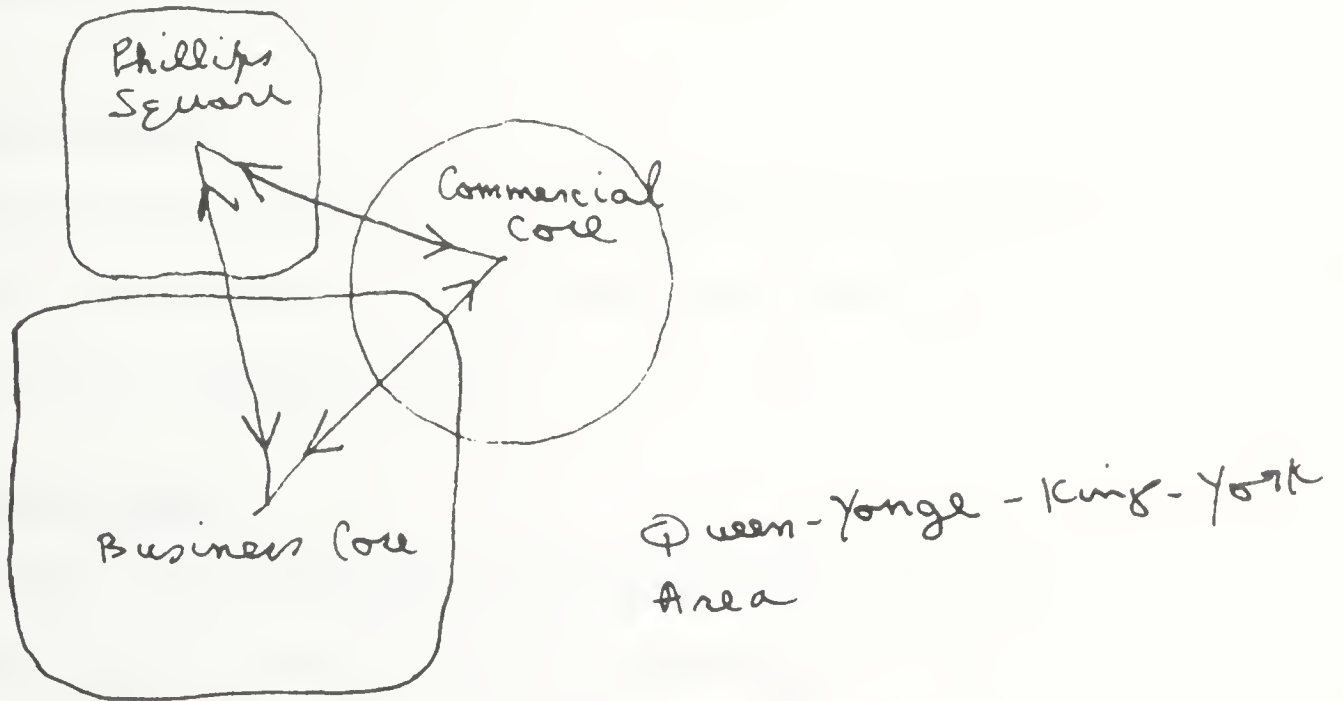 Phillips
Square
Commercial
Core
Business Core
Queen-Yonge-King-York
Area